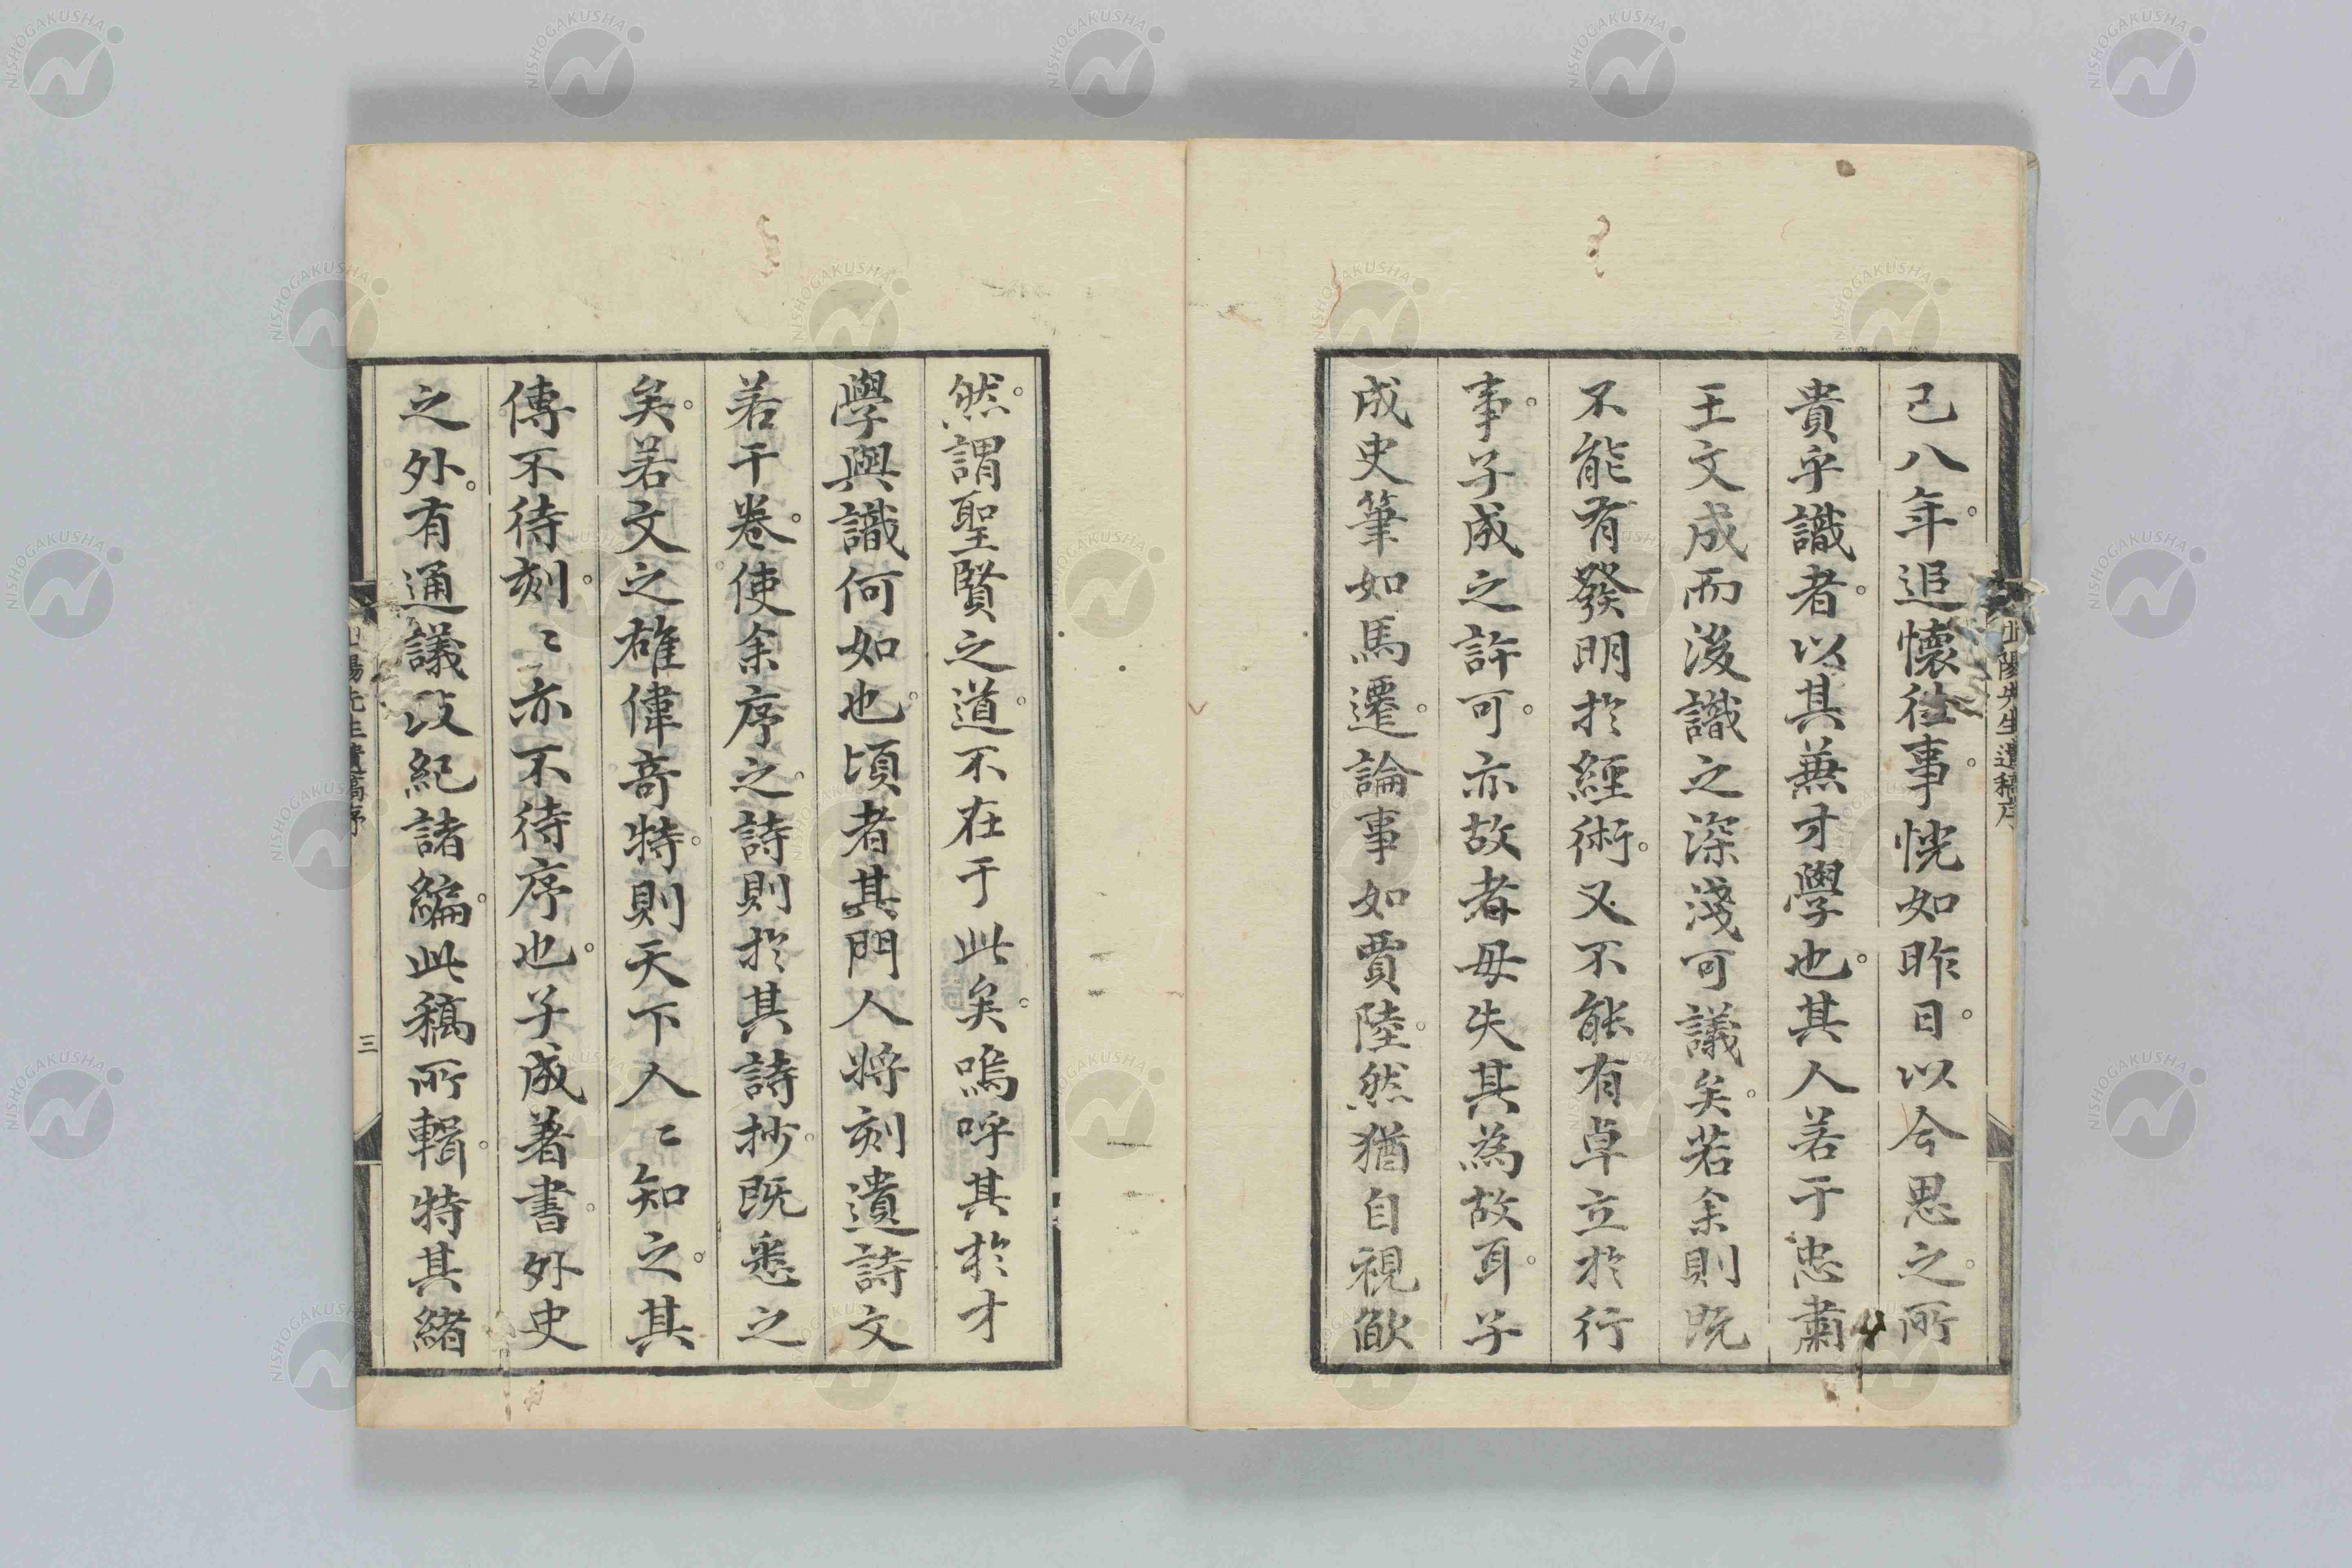 山陽先生遺稿序
已八年。追懷往事。恍如昨日。以今思之。所
貴乎識者。以其兼才學也。其人若于忠肅
王文成而後識之深淺可議矣。若余則既
不能有發明於經術。又不能有卓立於行
事。子成之許可。亦故者毋失其為故耳。子
成史筆如馬遷。論事如賈陸。然猶自視歉
然。謂聖賢之道。不在于此矣。嗚呼其於才
學與識何如也。頃者其門人將刻遺詩文
若干卷。使余序之。詩則於其詩抄。既悉之
矣。若文之雄偉奇特。則天下人〻知之。其
傳不待刻。〻亦不待序也。子成著書。外史
之外。有通議政紀諸編。此稿所輯。特其緒
山陽先生遺稿序
三
NISHOGAKUSHA